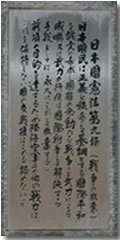 日本国憲法第九條（戦争の放棄）
日本国民は正義と秩序を基調とする国際平和
を誠実に希求し国権の発動たる戦争と
武力による威嚇又は武力の行使は国際紛争を解決する
手段としては永久にこれを放棄する
前項の目的を達するため陸海空軍その他の戦力は
これを保持しない国の交戦権はこれを認めない